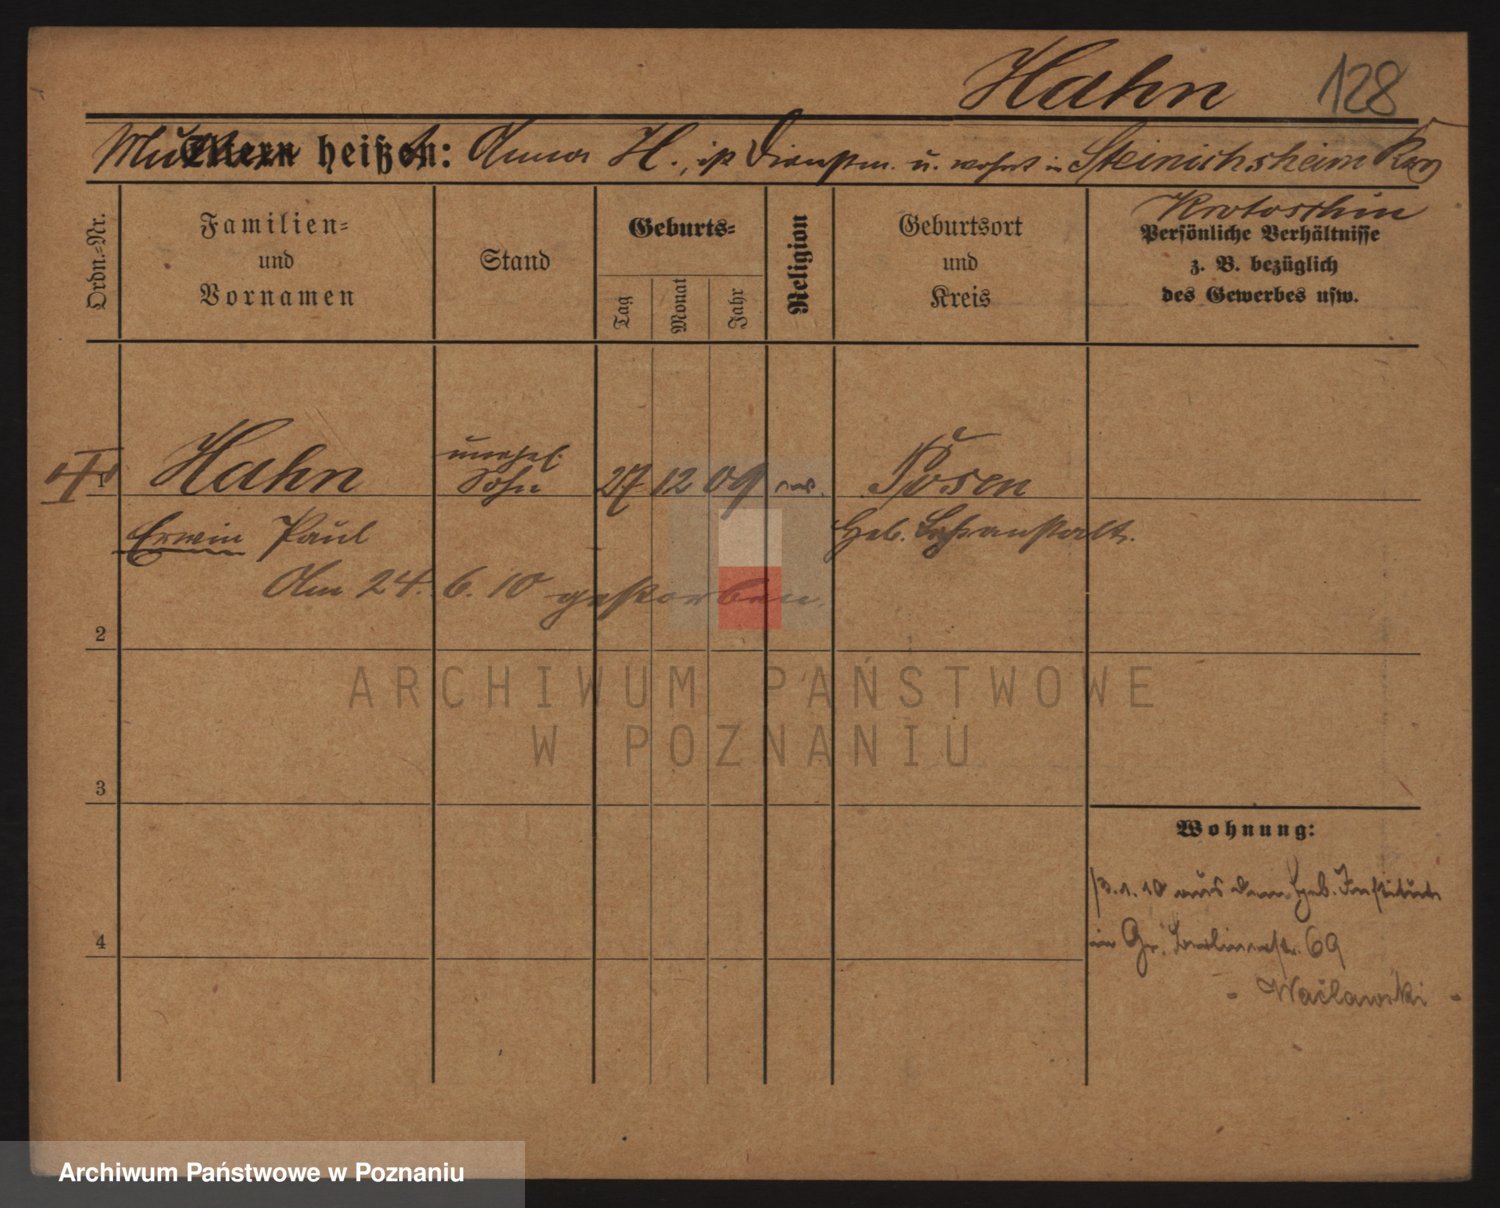 Hahn 128
Mutter heißt: Anna H., ist Dienstm. u. wohnt in Steinichsheim Krs
Krotoschin
Ordn.-Nr.
Familien-
und
Vornamen
Stand
Geburts-
Tag
Monat
Jahr
Religion
Geburtsort
und
Kreis
Persönliche Verhältnisse
z. B. bezüglich
des Gewerbes usw.
1 Hahn unehel. Sohn 27 12 09 ev. Posen
Erwin Paul Heb. Lehranstalt.
Am 24. 6. 10 gestorben.
2
3
4
Wohnung:
13.1.10 aus dem Heb. Institut
in Gr. Berlinerstr. 69
- Waclawski -
ARCHIWUM PAŃSTWOWE
W POZNANIU
Archiwum Państwowe w Poznaniu